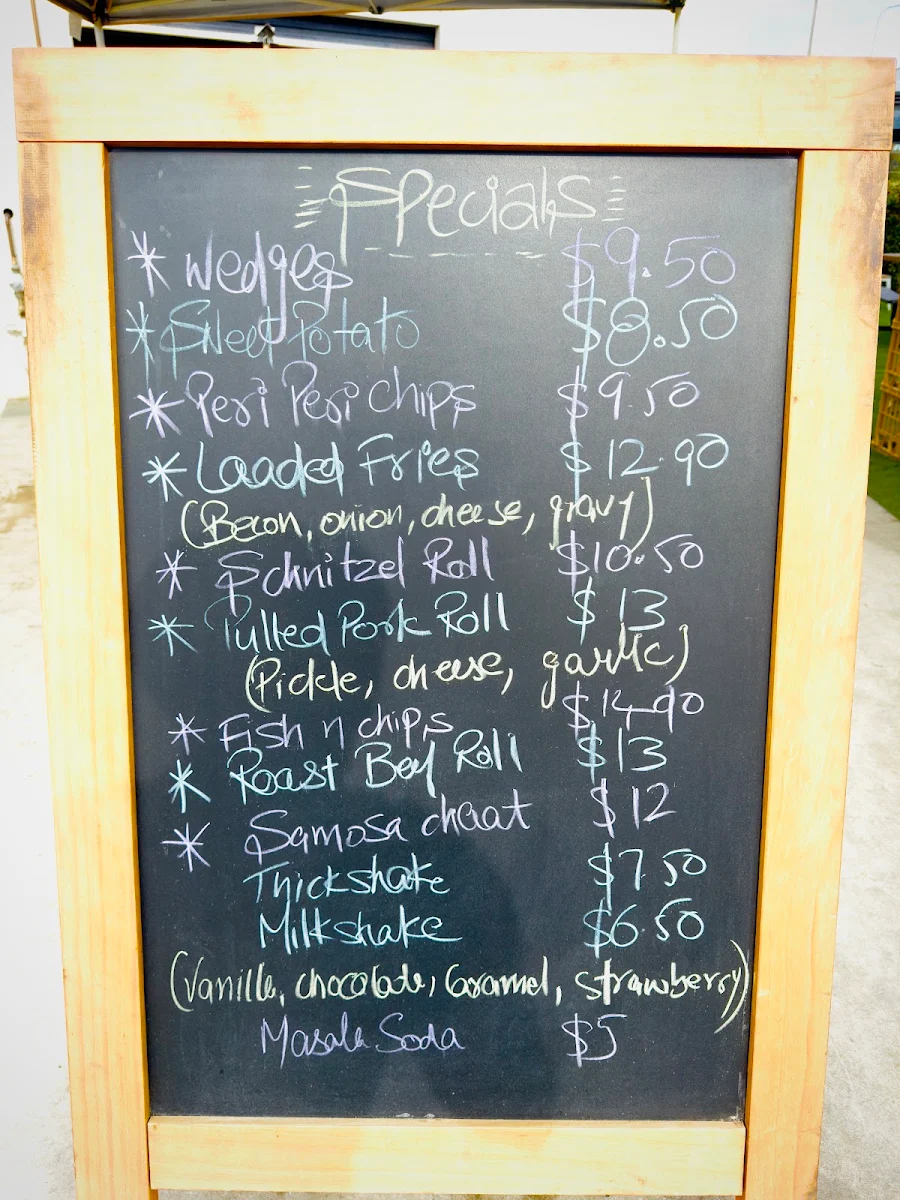 Specials
* Wedges $9.50
* Sweet Potato $8.50
* Peri Peri chips $9.50
* Loaded Fries $12.90
(Bacon, onion, cheese, gravy)
* Schnitzel Roll $10.50
* Pulled Pork Roll $13
(Pickle, cheese, garlic)
* Fish n chips $14.90
* Roast Beef Roll $13
* Samosa chaat $12
Thickshake $7.50
Milkshake $6.50
(Vanilla, chocolate, Caramel, strawberry)
Masala Soda $5